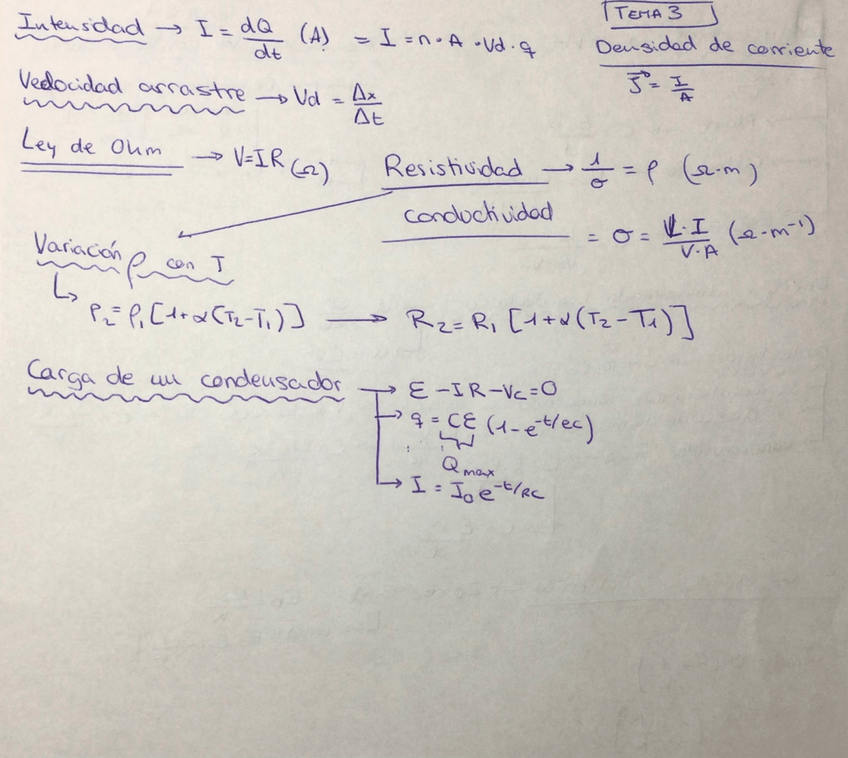 TEMA 3
Intensidad → I = dQ/dt (A) = I = n · A · Vd · q
Densidad de corriente
J⃗ = I/A
Velocidad arrastre → Vd = Δx/Δt
Ley de Ohm → V=IR (Ω)
Resistividad → 1/σ = ρ (Ω·m)
conductividad = σ = L·I/V·A (Ω·m⁻¹)
Variación ρ con T
↳ ρ₂=ρ₁[1+α(T₂-T₁)] → R₂=R₁[1+α(T₂-T₁)]
Carga de un condensador → E - IR - Vc=0
→ q = CE (1-e^-t/ec)
Qmax
→ I = I₀ e^-t/RC